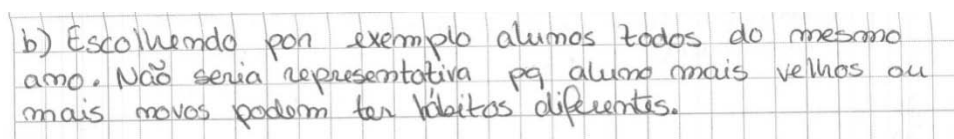 b) Escolhendo por exemplo alunos todos do mesmo
ano. Não seria representativa pq aluno mais velhos ou
mais novos podem ter hábitos diferentes.